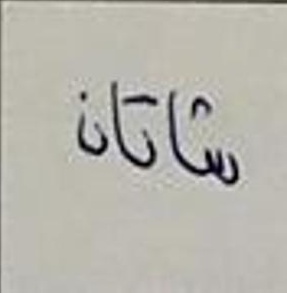 شاتان